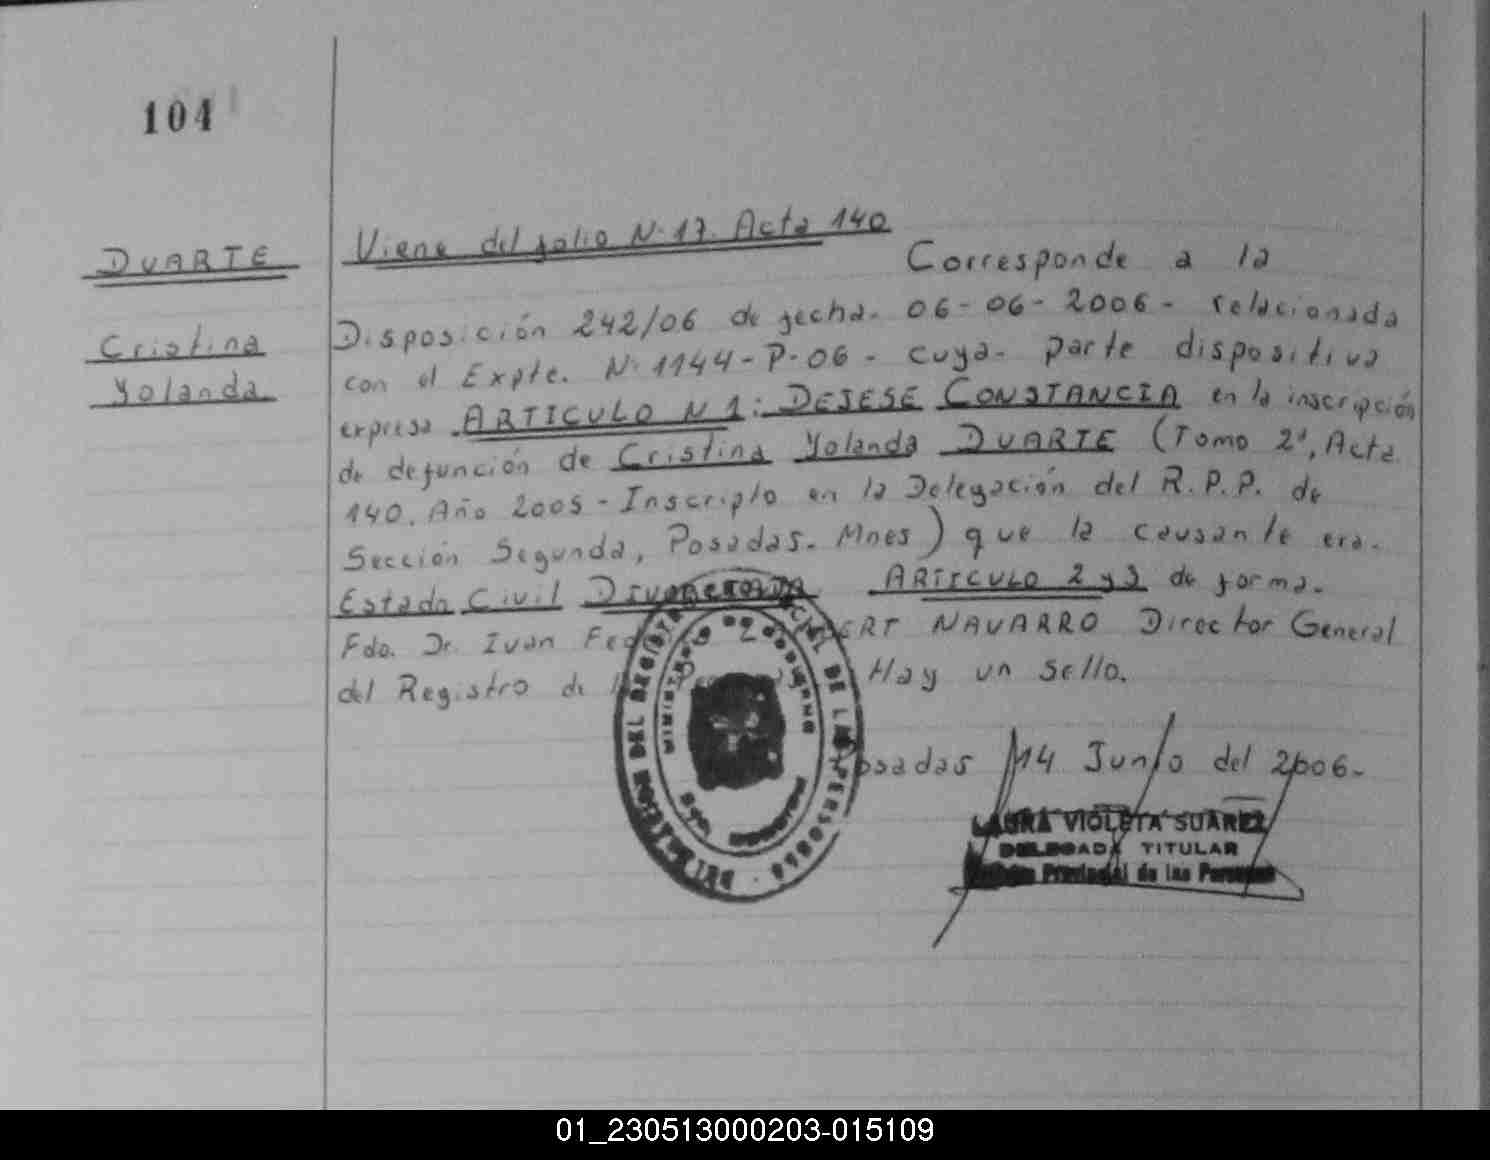 104
DUARTE
Cristina
Yolanda
Viene del folio N. 17. Acta 140
Corresponde a la
Disposición 242/06 de fecha. 06-06-2006- relacionada
con el Expte. N. 1144-P-06- cuya. parte dispositiva
expresa ARTICULO N 1: DEJESE CONSTANCIA en la inscripción
de defunción de Cristina Yolanda DUARTE (Tomo 2°, Acta
140. Año 2005 - Inscripto en la Delegación del R.P.P. de
Sección Segunda, Posadas. Mnes) que la causante era.
Estado Civil DIVORCIADA ARTICULO 2 y 3 de forma.
Fdo. Dr. Ivan NAVARRO Director General
del Registro de Hay un sello.
Posadas 14 Junio del 2006-
LAURA VIOLETA SUAREZ
DELEGADA TITULAR
Provincial de las Personas
MINISTERIO DE GOBIERNO
DEL REGISTRO DE LAS PERSONAS
01_230513000203-015109